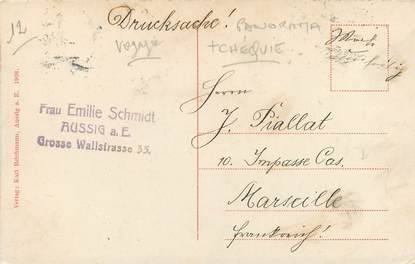 12
Drucksache!
voyage
PANORAMA
TCHEQUIE
Frau Emilie Schmidt
AUSSIG a. E.
Grosse Wallstrasse 35.
Herrn
J. Piallat
10. Impasse Cas.
Marseille
frankreich!
Verlag: Karl Reichmann, Aussig a. E. 1908.